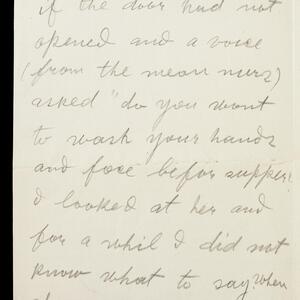 if the door had not
opened and a voice
(from the mean nurs)
asked "do you wont
to wash your hands
and face befor supper!
I looked at her and
for a whil I did not
know what to say. When